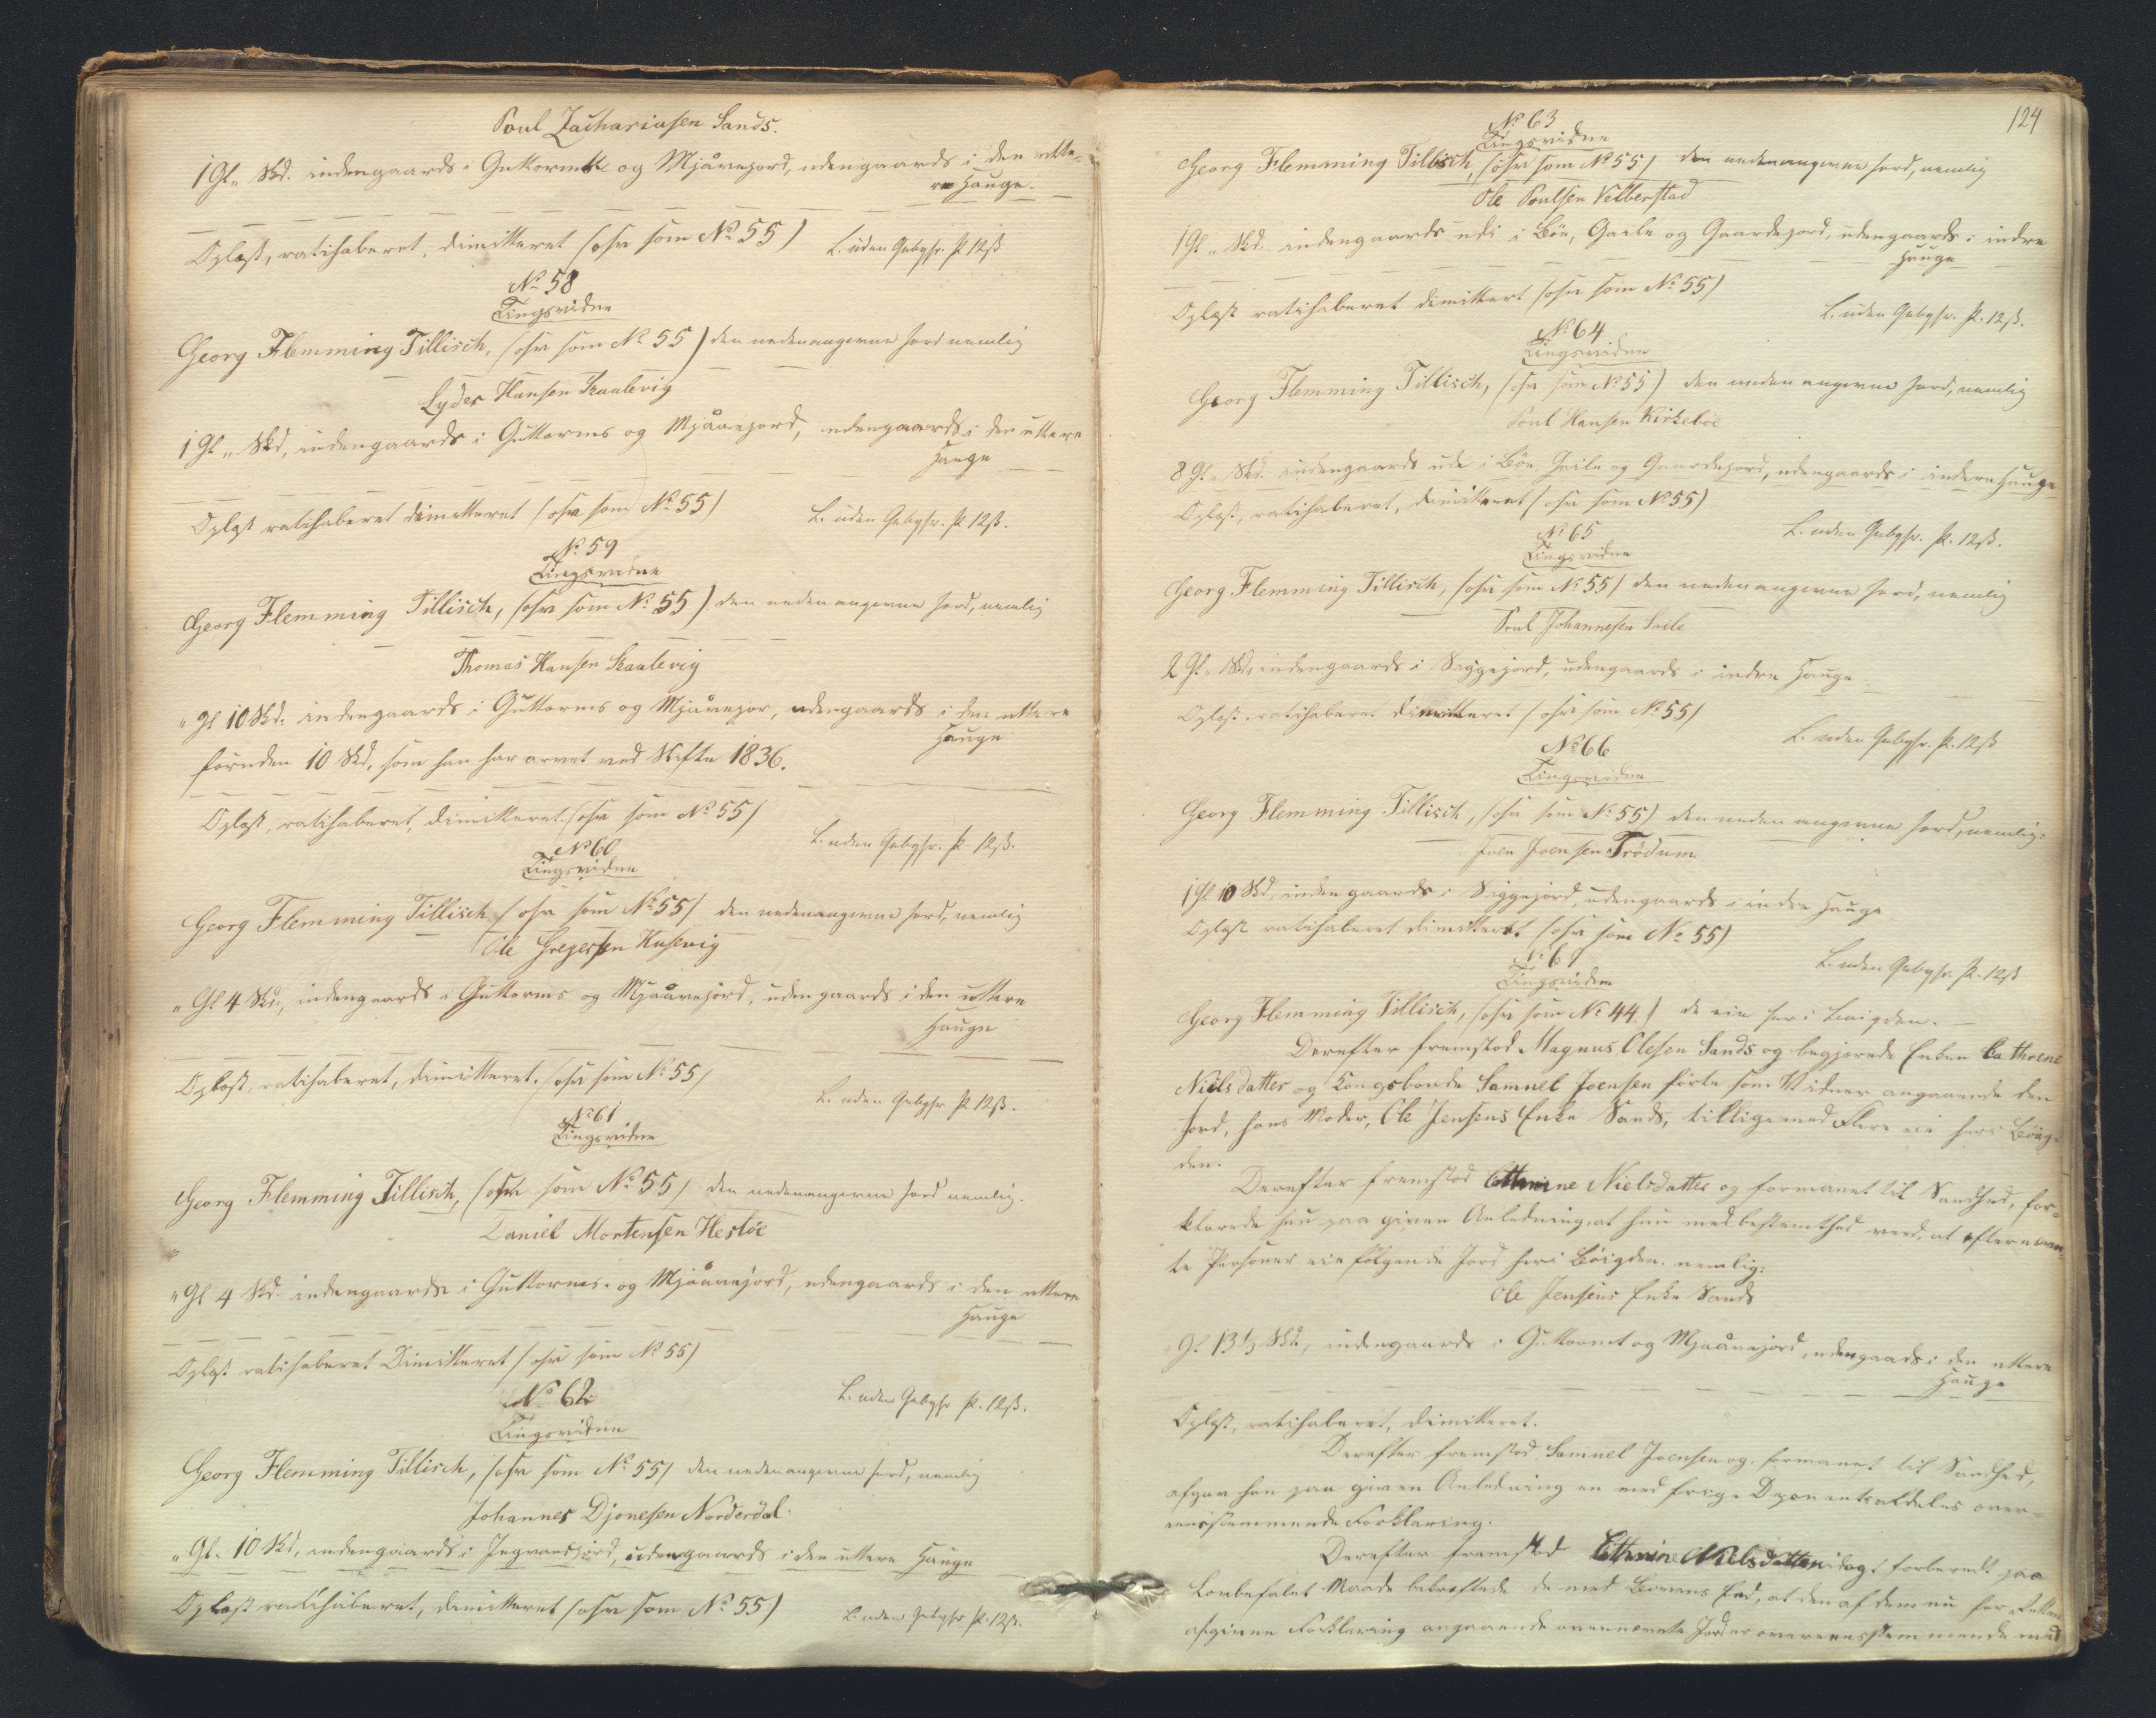 Poul Zachariasen Sands.
1 Gl. „ Skd. indengaards i Guttorms og Mjåvejord, udengaards i den ytte-
re Hauge.
Oplæst, ratihaberet, dimitteret (osv som No 55)
L. uden Gebyhr. St. 12 ß
No 58
Tingsvidne
Georg Flemming Tillisch, (osv som No 55) den nedenangivne Jord nemlig
Lyder Hansen Skaalevig
1 Gl. „ Skd, indengaards i Guttorms og Mjåvejord, udengaards i den yttere
Hauge
Oplæst ratihaberet dimitteret (osv som No 55)
L. uden Gebyhr. St. 12 ß.
No 59
Tingsvidne
Georg Flemming Tillisch, (osv som No 55) den nedenangivne Jord, nemlig
Thomas Hansen Skaalevig
„ Gl 10 Skd. indengaards i Guttorms og Mjåvejor, udengaards i den yttere
Hauge
foruden 10 Skd, som han har arvet ved Skifte 1836.
Oplæst, ratihaberet, dimitteret. (osv som No 55)
L. uden Gebyhr. St. 12 ß.
No 60
Tingsvidne
Georg Flemming Tillisch (osv som No 55) den nedenangivne Jord, nemlig
Ole Gregersen Husevig
„ Gl 4 Skd, indengaards i Guttorms og Mjaåvejord, udengaards i den yttere
Hauge
Oplæst, ratihaberet, dimitteret. (osv som No 55)
L. uden Gebyhr St 12 ß.
No 61
Tingsvidne
Georg Flemming Tillisch, (osv som No 55) den nedenangivne Jord nemlig.
Daniel Mortensen Hestøe
„ Gl 4 Skd. indengaards i Guttorms. og Mjåavejord, udengaards i den yttere
Hauge
Oplæst ratihaberet Dimitteret (osv som No 55)
L. uden Gebyhr St. 12 ß.
No 62
Tingsvidne
Georg Flemming Tillisch, (osv som No 55) den nedenangivne Jord, nemlig
Johannes Djonesen Norderdal.
„ Gl. 10 Skd, indengaards i Ingvarsjord, udengaards i den yttere Hauge
Oplæst ratihaberet, dimitteret (osv som No 55)
L. uden Gebyhr St. 12 ß.
124
No 63
Tingsvidne
Georg Flemming Tillisch, (osv som No 55) den nedenangivne Jord, nemlig
Ole Poulsen Velberstad
1 Gl „ Skd. indengaards udi i Bøn, Gaile og Gaardejord, udengaards i indre
Hauge
Oplæst ratihaberet dimittert (osv som No 55)
L. uden Gebyhr. St. 12 ß.
No 64
Tingsvidne
Georg Flemming Tillisch, (osv som No 55) den neden angivne Jord, nemlig
Poul Hansen Kirkebøe
8 Gl „ Skd. indengaards ude i Bøn, Gaile og Gaardejord, udengaards i indere Hauge
Oplæst, ratihaberet, dimitteret (osv som No 55)
L. uden Gebyhr. St. 12 ß.
No 65
Tingsvidne
Georg Flemming Tillisch, (osv som No 55) den nedenangivne Jord, nemlig
Poul Johannesen
2 Gl. „ Skd, indengaards i Siggejord, udengaards i indre Hauge
Oplæst ratihaberet dimitteret (osv som No 55)
L. uden Gebyhr. St. 12 ß
No 66
Tingsvidne
Georg Flemming Tillisch, (osv som No 55) den neden angivne Jord, nemlig:
Joen Joensen Trödum
1 Gl 10 Skd, indengaards i Siggejord, udengaards i indre Hauge
Oplæst ratihaberet dimitteret (osv som No 55)
L. uden Gebyhr. St. 12 ß
No 67
Tingsvidne
Georg Flemming Tillisch, (osv som No 44) de eie her i Boigden.
Derefter fremstod Magnus Olesen Sands og begjerede Enken Cathrine
Niels datter og Kongsbonde Samuel Joensenførte som Vidner angaaende den
Jord, hans Moder, Ole Jensens Enke Sands, tilligemed Flere eie her i Boig-
den.
Derefter fremstod Cathrine Nielsdatter og formanet til Sandhed, for-
klarede hun paa given Anledning at hun med bestemthed veed, at efternævn-
te Personer eie følgende Jord her i Böigden. nemlig:
Ole Jensens Enke Sands
Gl. 13 1/3 Skd, indengaards i Guttormt og Mjaåvejord, udengaads i den yttere
Hauge
Oplæst, ratihaberet, dimitteret.
Derefter fremstod Samuel Joensen og formanet til Sandhed,
afgav han paa given Anledning en med forige Deponent aldeles over-
eensstemmende Forklaring.
Derefter fremstod Cathrine Nielsdatter forberedt paa
Lovbefalet Maade bekræftede de med Bovens Eed, at den af dem nu for Retten
afgivne Forklaring angaaende ovennævnte Jord er overeensstemmende med